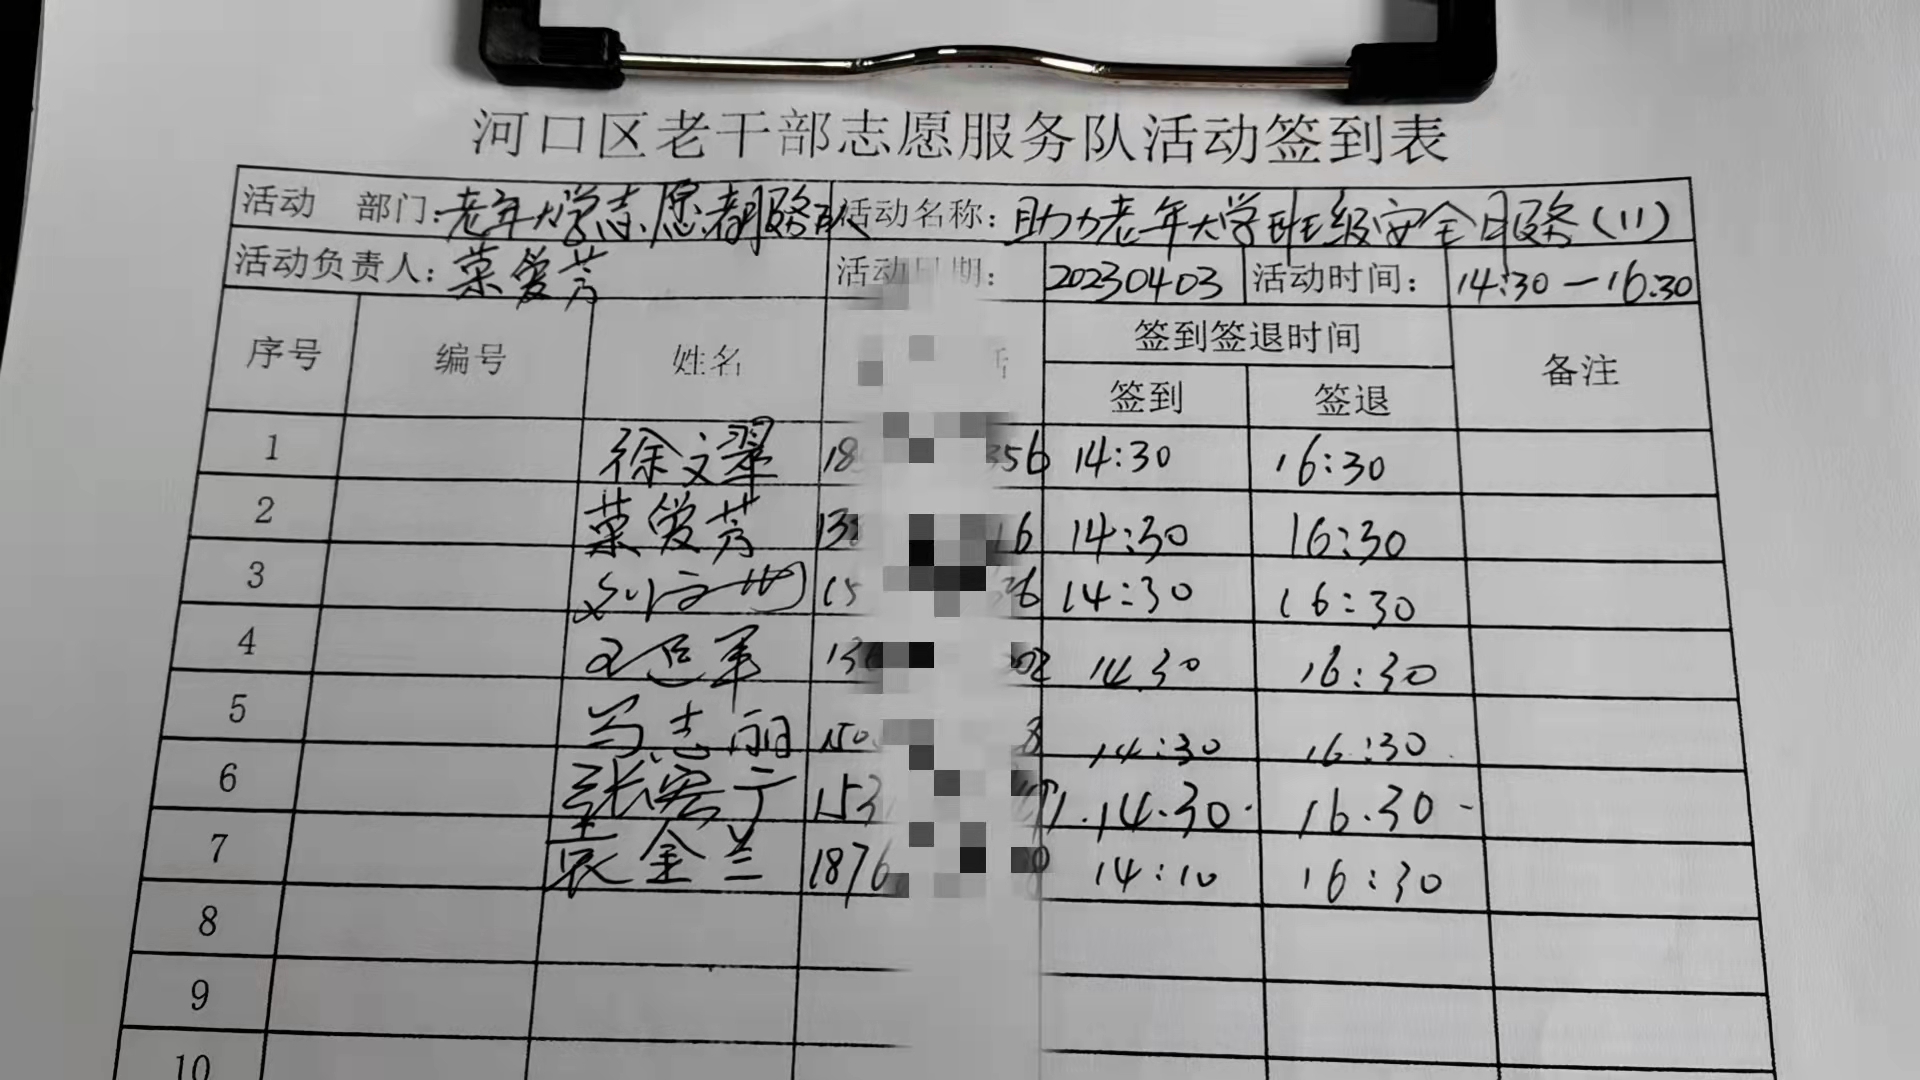 河口区老干部志愿服务队活动签到表
活动 部门：老年大学志愿者服务队 活动名称：助力老年大学班级安全服务（11）
活动负责人：菜爱芳 活动日期： 20230403 活动时间：14:30—16:30
序号 编号 姓名 签到签退时间 备注
签到 签退
1 徐文翠 18 356 14:30 16:30
2 菜爱芳 138 16 14:30 16:30
3 15 26 14:30 16:30
4 136 202 14:30 16:30
5 马志丽 150 8 14:30 16:30
6 张宏宁 153 14.30 16.30
7 金兰 1876 14:10 16:30
8
9
10